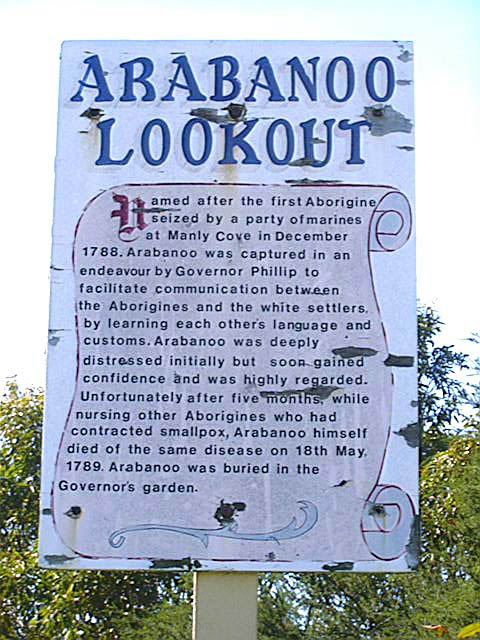 ARABANOO
LOOKOUT
Named after the first Aborigine
seized by a party of marines
at Manly Cove in December
1788. Arabanoo was captured in an
endeavour by Governor Phillip to
facilitate communication between
the Aborigines and the white settlers,
by learning each other's language and
customs. Arabanoo was deeply
distressed initially but soon gained
confidence and was highly regarded.
Unfortunately after five months, while
nursing other Aborigines who had
contracted smallpox, Arabanoo himself
died of the same disease on 18th May,
1789. Arabanoo was buried in the
Governor's garden.